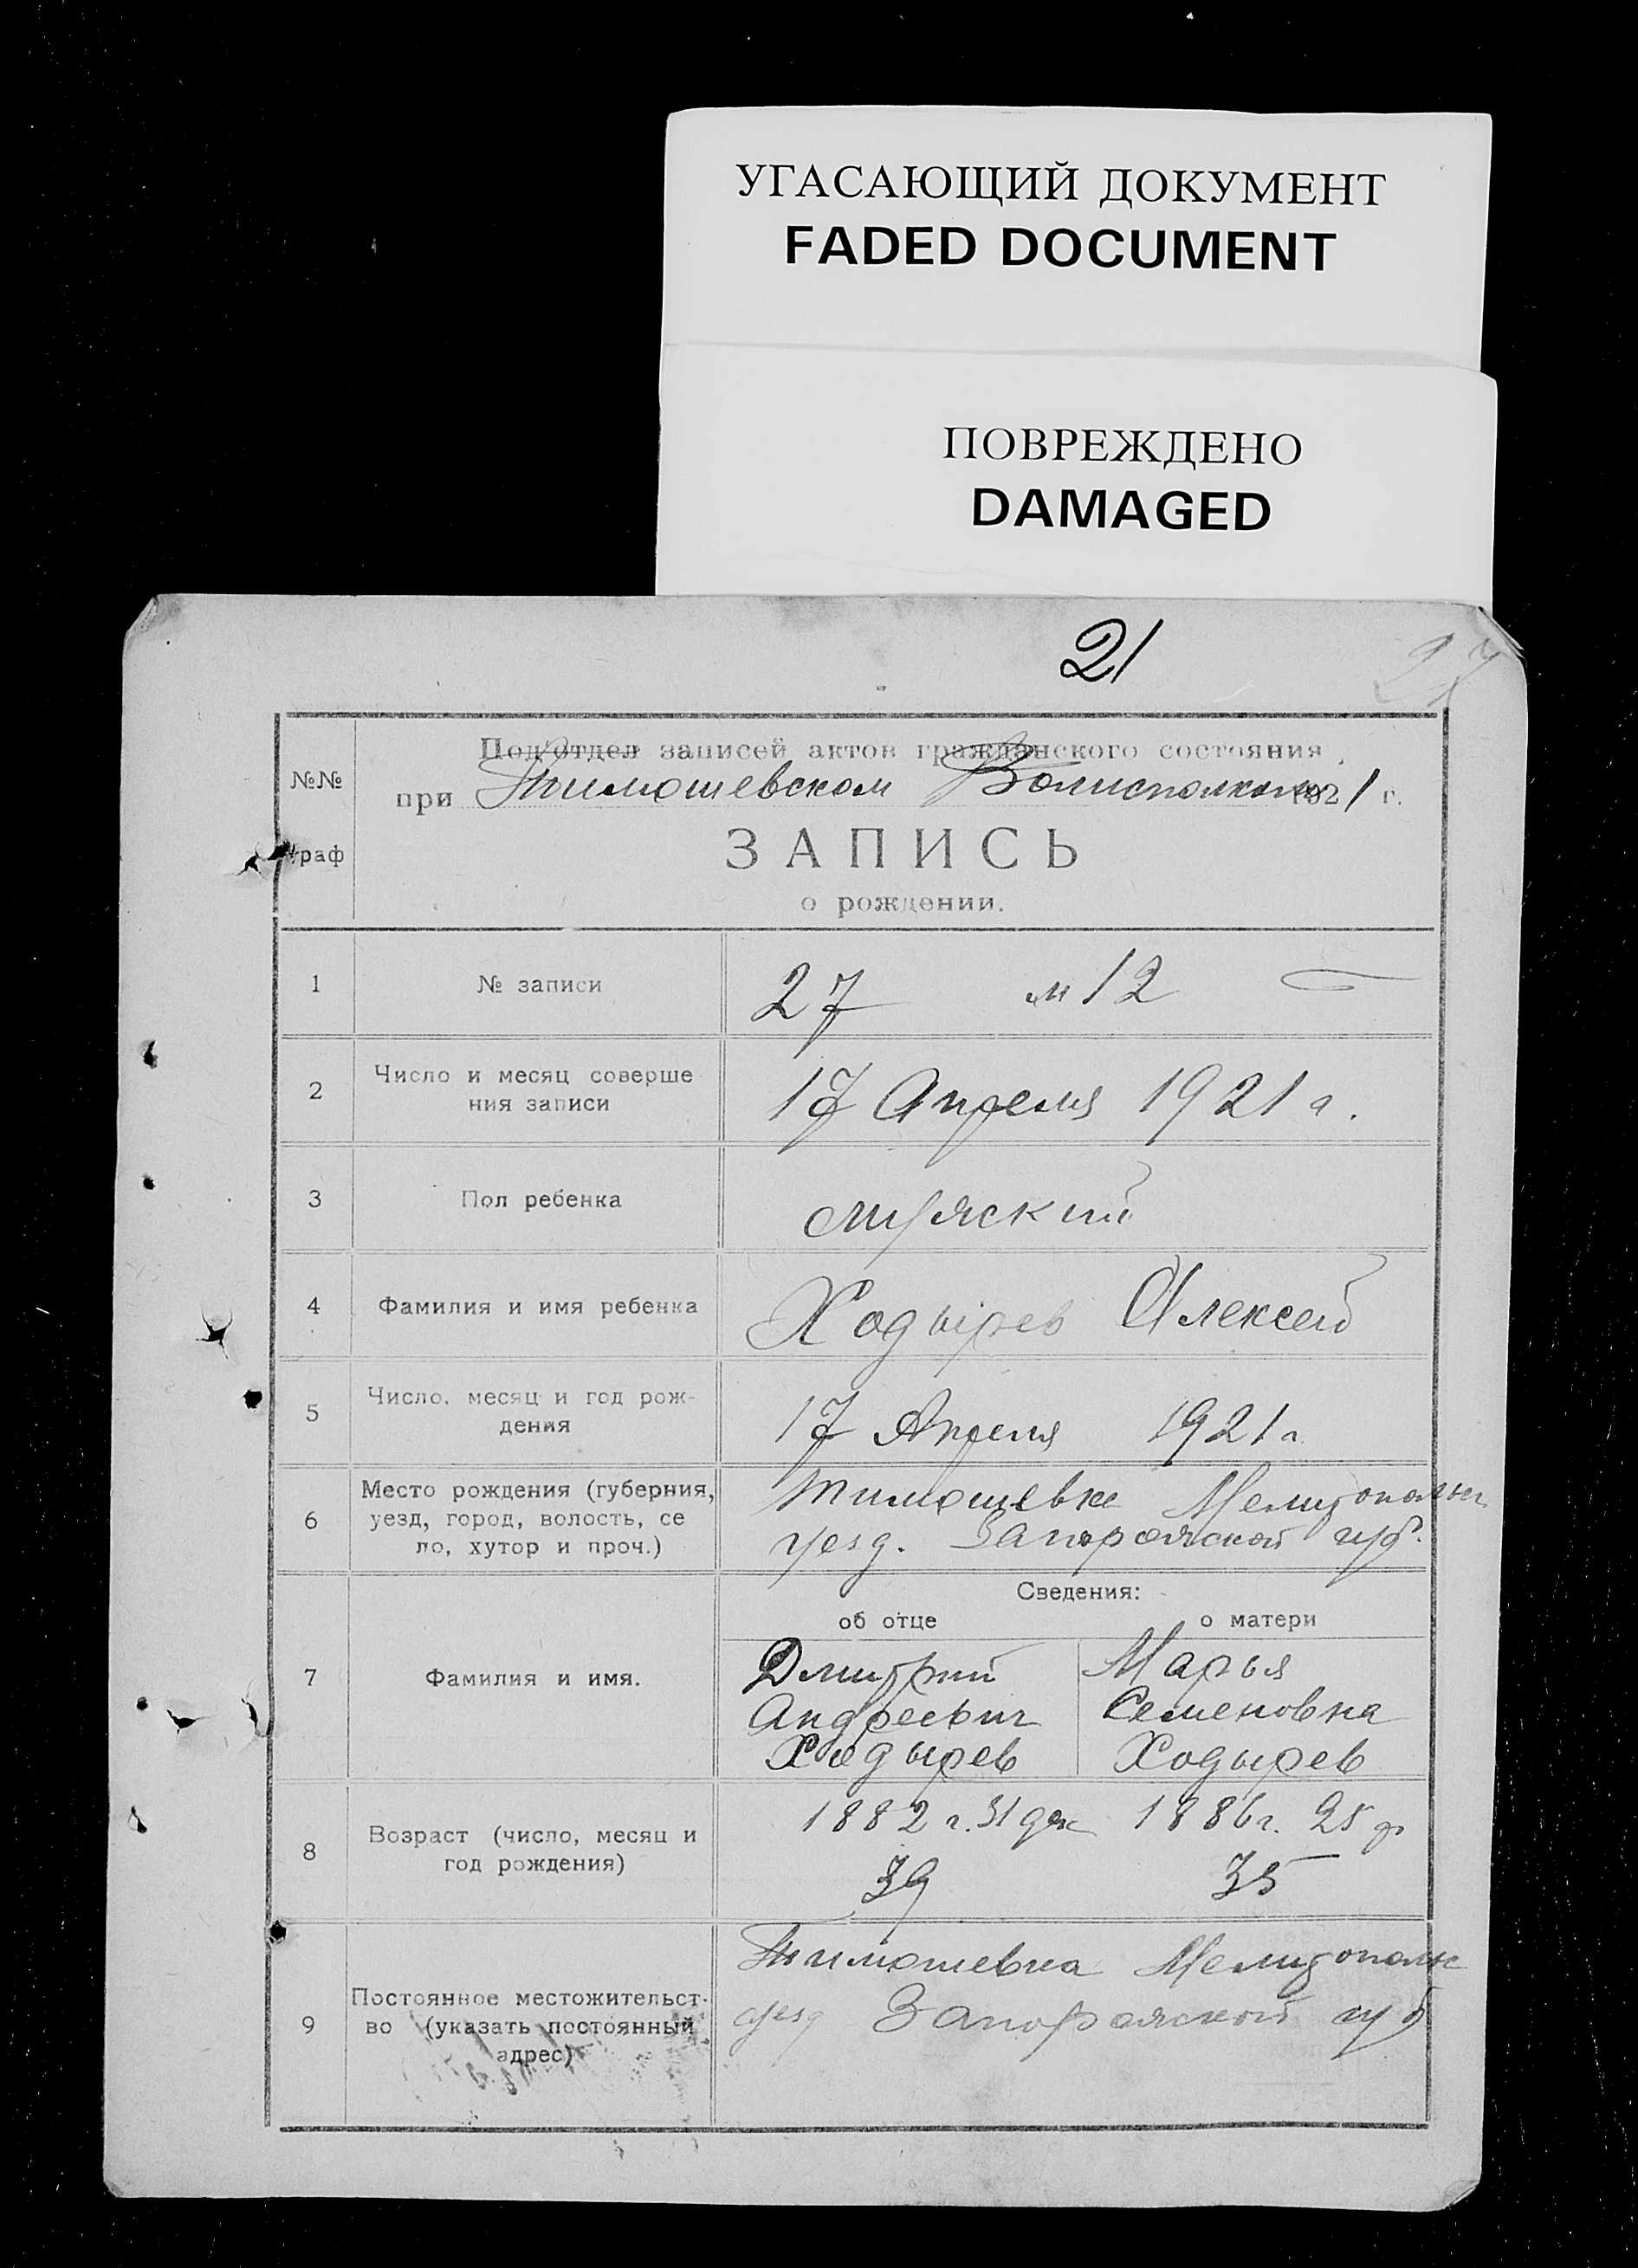 УГАСАЮЩИЙ ДОКУМЕНТ
FADED DOCUMENT
ПОВРЕЖДЕНО
DAMAGED
21
27
Под'отдел записей актов гражданского состояния
№№ граф
при Тимошевском Волисполкоме 1921 г.
ЗАПИСЬ
о рождении.
1 № записи 27 м 12
2 Число и месяц соверше
ния записи 17 Апреля 1921 г.
3 Пол ребенка мужский
4 Фамилия и имя ребенка Ходырев Алексей
5 Число, месяц и год рож-
дения 17 Апреля 1921 г
6 Место рождения (губерния, Тимошевке Мелитопольск
уезд, город, волость, се уезд. Запорожской губ.
ло, хутор и проч.)
Сведения:
об отце о матери
7 Фамилия и имя. Дмитрий Марья
Андреевич Семеновна
Ходырев Ходырев
8 Возраст (число, месяц и 1882 г. 31 дек 1886 г. 25
год рождения) 39 35
Тимошевка Мелитопольс
9 Постоянное местожительст-
во (указать постоянный уезд Запорожской губ
адрес)